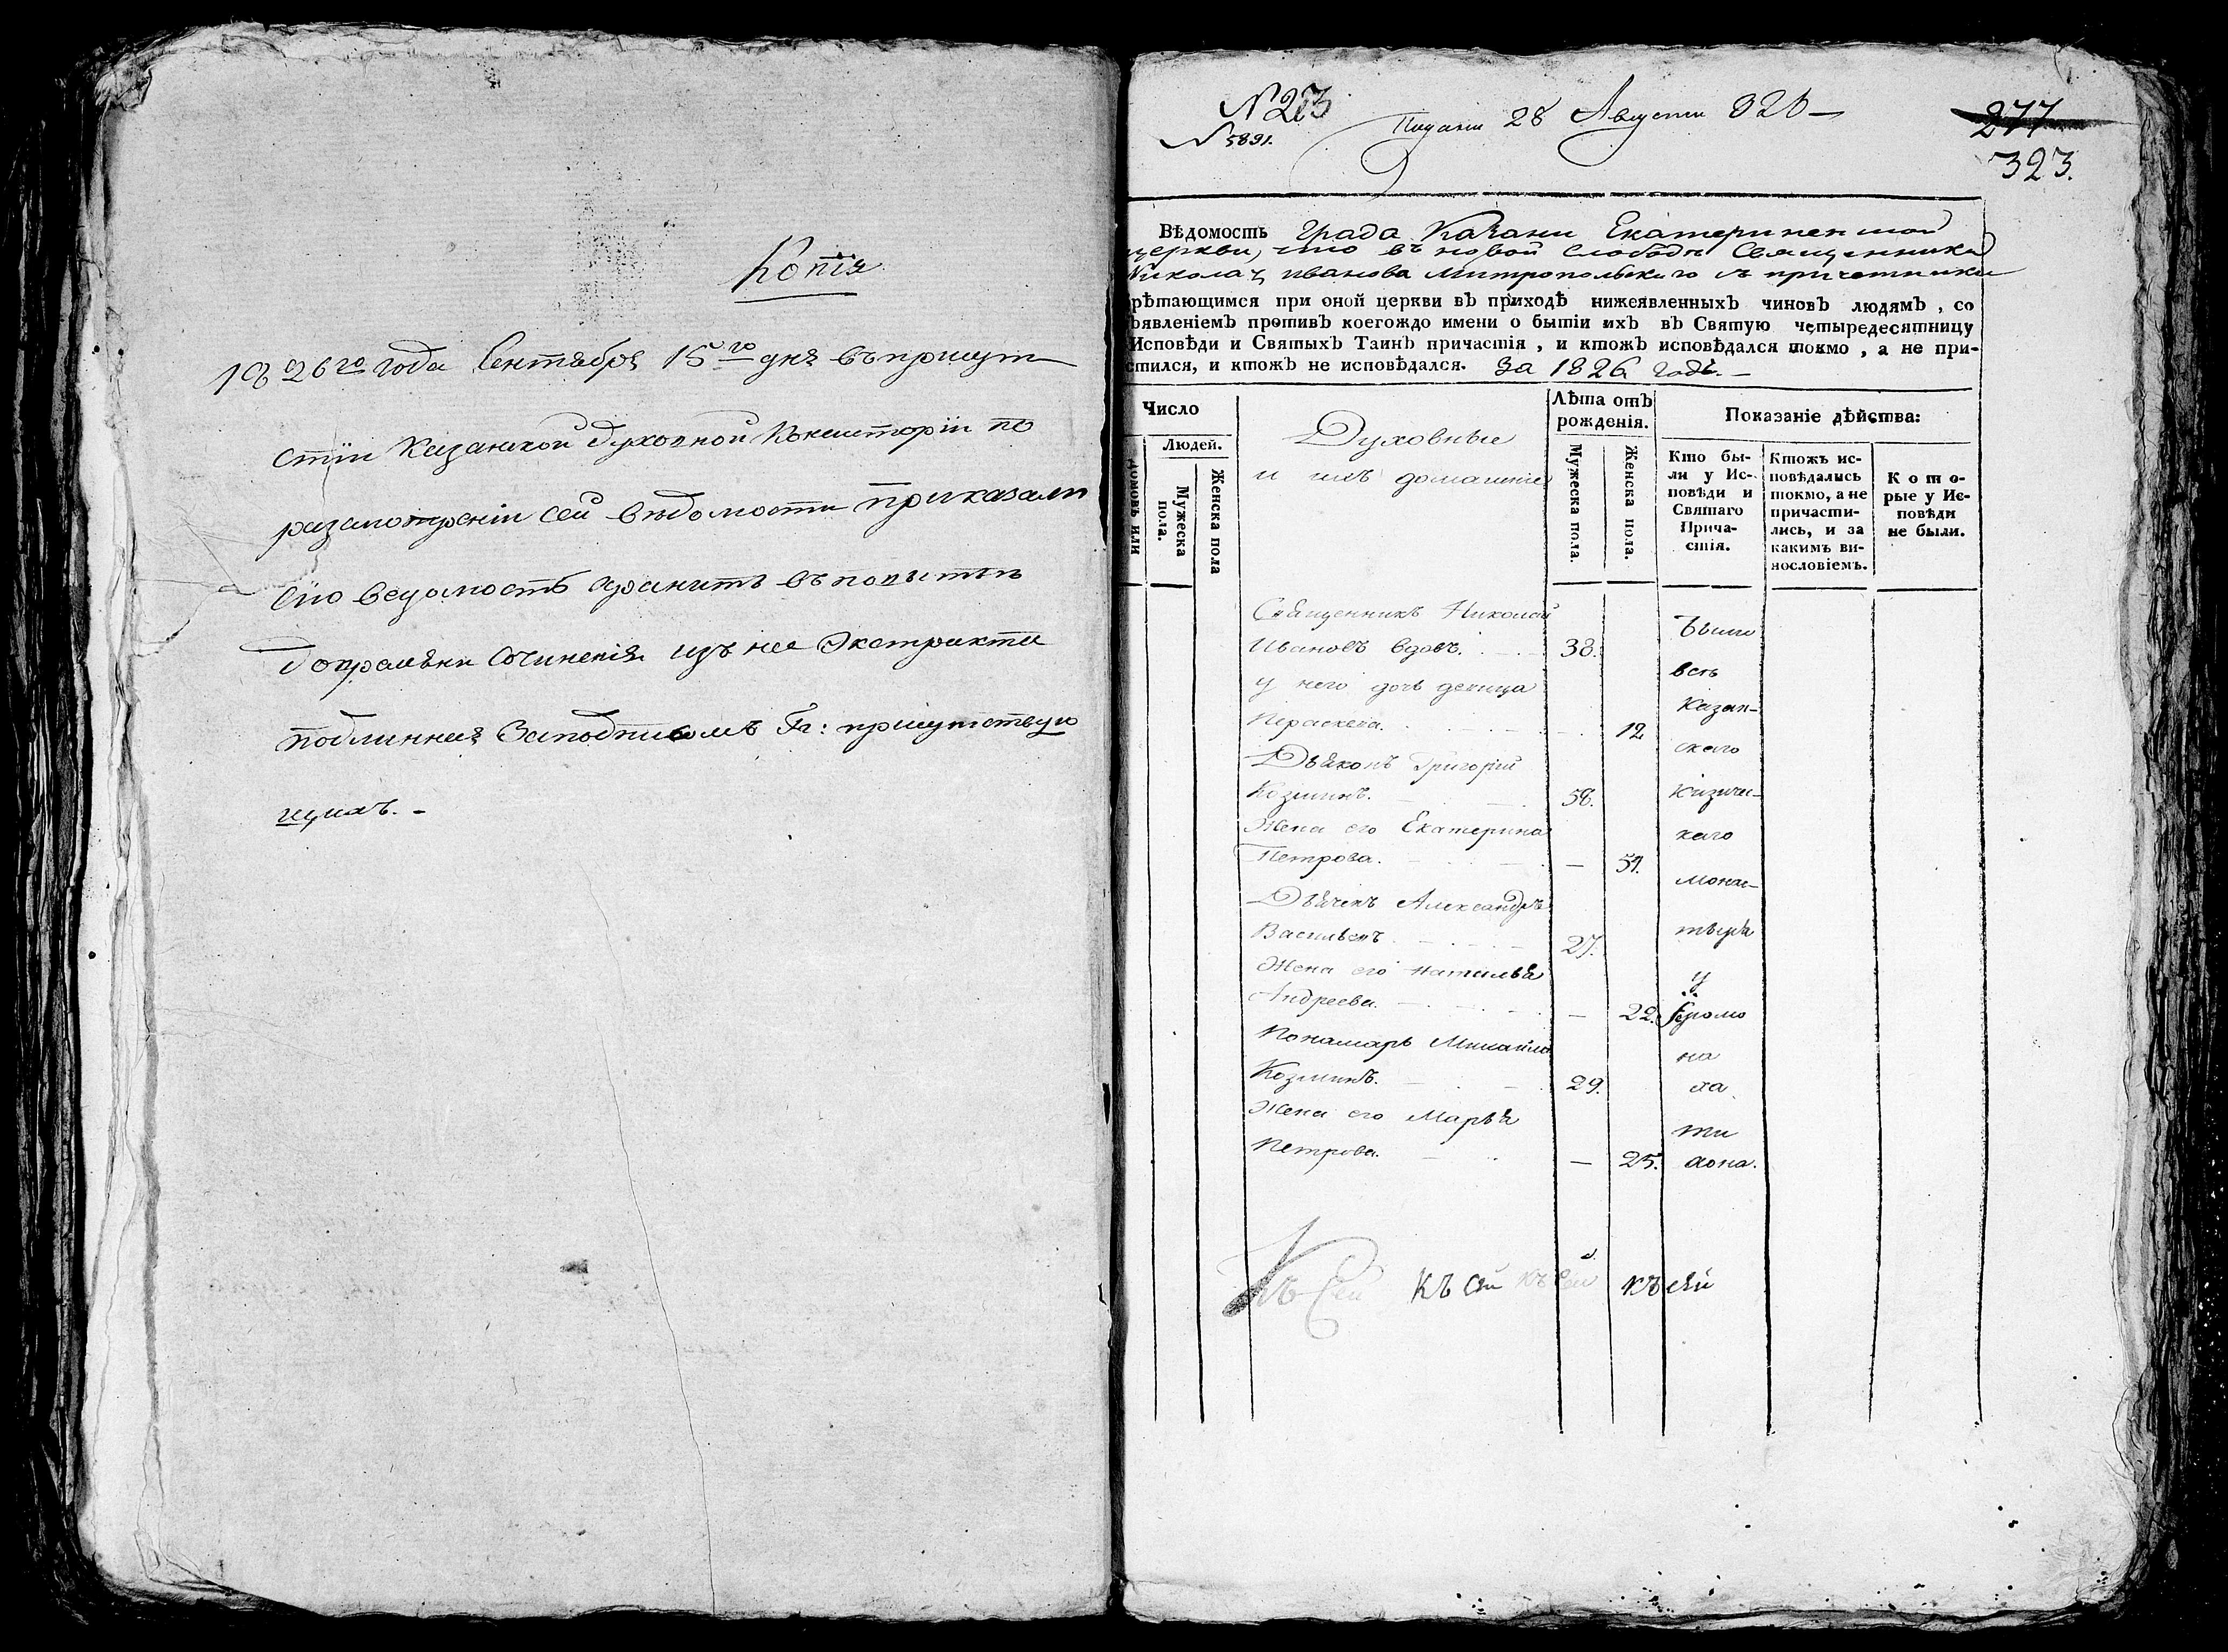 Копія
1826го года Сентября 15го дня въ присут
ствіи Казанской духовной Консисторіи по
разсмотреніи сей вѣдомости приказали
сію ведомость хранить въ повытьѣ
до отправки сочинения изъ нее Экстракта
подлинная за подписомъ Гг: присутствую
щихъ. -
N 213
N 5891.
Подана 28 Августа 826 —
277
323.
Вѣдомость Града Казани Екатерининской
церкви, что въ новой Слободѣ Священника
Николая Иванова Митропольскаго съ причетники
рѣтающимся при оной церкви въ приходѣ нижеявленныхъ чиновъ людямъ, со
ъявленіемъ противъ коегождо имени о бытіи ихъ въ Святую четыредесятницу
Исповѣди и Святыхъ Таинъ причастія, и ктожъ исповѣдался токмо, а не при-
стился, и ктожъ не исповѣдался. За 1826 годъ. —
Число
Людей.
домовъ или
Мужеска пола.
Женска пола
Духовные
и ихъ домашніе
Лѣта отъ рожденія.
Мужеска пола.
Женска пола.
Показаніе дѣйства:
Кто бы-
ли у Ис-
повѣди и
Святаго
Прича-
стія.
Ктожъ ис-
повѣдались
токмо, а не
причасти-
лись, и за
какимъ ви-
нословіемъ.
Кото-
рые у Ис-
повѣди
не были.
Священникъ Николай
Ивановъ вдовъ. 38.
у него дочь девица
Параскева. 12
Дьяконъ Григорій
Козминъ. 58.
Жена его Екатерина
Петрова. — 51.
Дьячекъ Александръ
Васильевъ 27.
Жена его Наталья
Андреева. — 22.
Понамарь Михайло
Козминъ. 29.
Жена его Марья
Петрова. — 25.
Были
всѣ
Казан-
скаго
Кизиче-
скаго
Монас-
тыря
у
Іеромо
на
ха
Къ Сей Къ сей Къ сей Къ сей